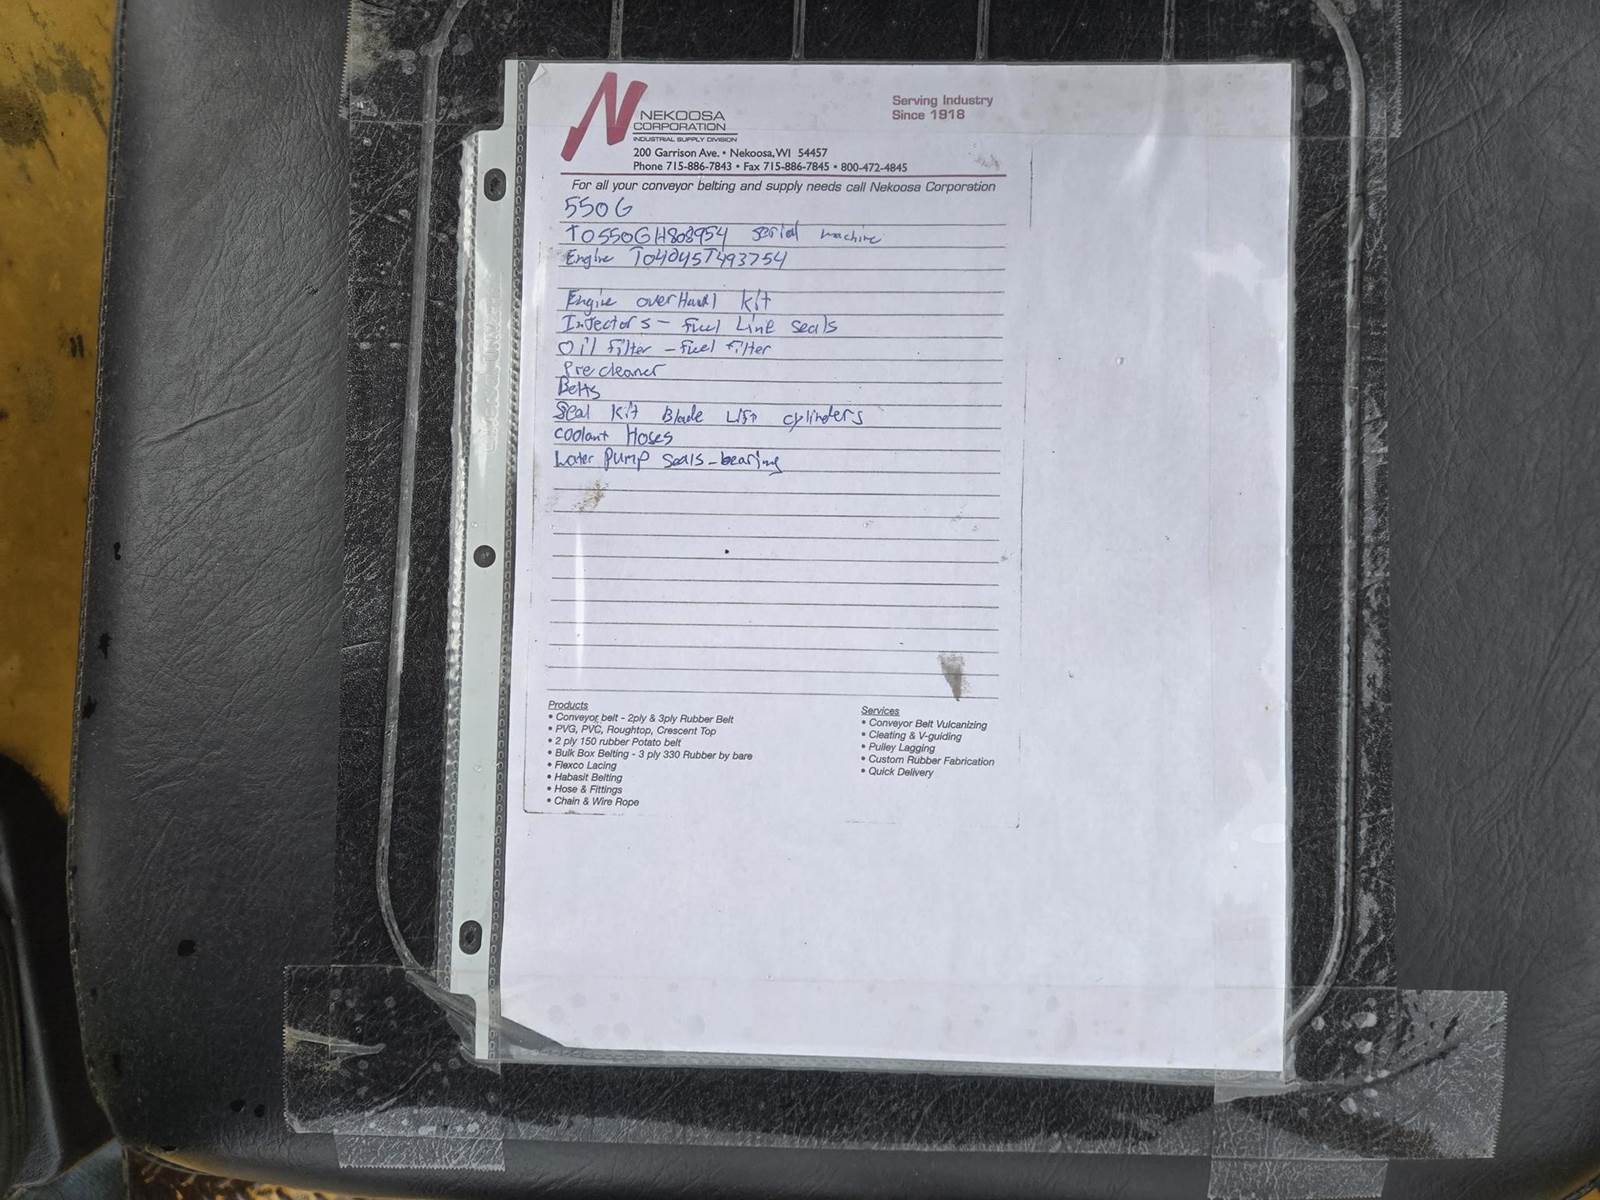 NEKOOSA
CORPORATION
INDUSTRIAL SUPPLY DIVISION
Serving Industry
Since 1918
200 Garrison Ave. • Nekoosa, WI 54457
Phone 715-886-7843 • Fax 715-886-7845 • 800-472-4845
For all your conveyor belting and supply needs call Nekoosa Corporation
550G
T0550GH808954 serial machine
Engine T04045T493754
Engine overHaul Kit
Injectors - Fuel Line seals
Oil Filter - Fuel Filter
Precleaner
Belts
Seal Kit Blade Lift cylinders
coolant Hoses
Water Pump seals - bearing
Products
• Conveyor belt - 2ply & 3ply Rubber Belt
• PVG, PVC, Roughtop, Crescent Top
• 2 ply 150 rubber Potato belt
• Bulk Box Belting - 3 ply 330 Rubber by bare
• Flexco Lacing
• Habasit Belting
• Hose & Fittings
• Chain & Wire Rope
Services
• Conveyor Belt Vulcanizing
• Cleating & V-guiding
• Pulley Lagging
• Custom Rubber Fabrication
• Quick Delivery